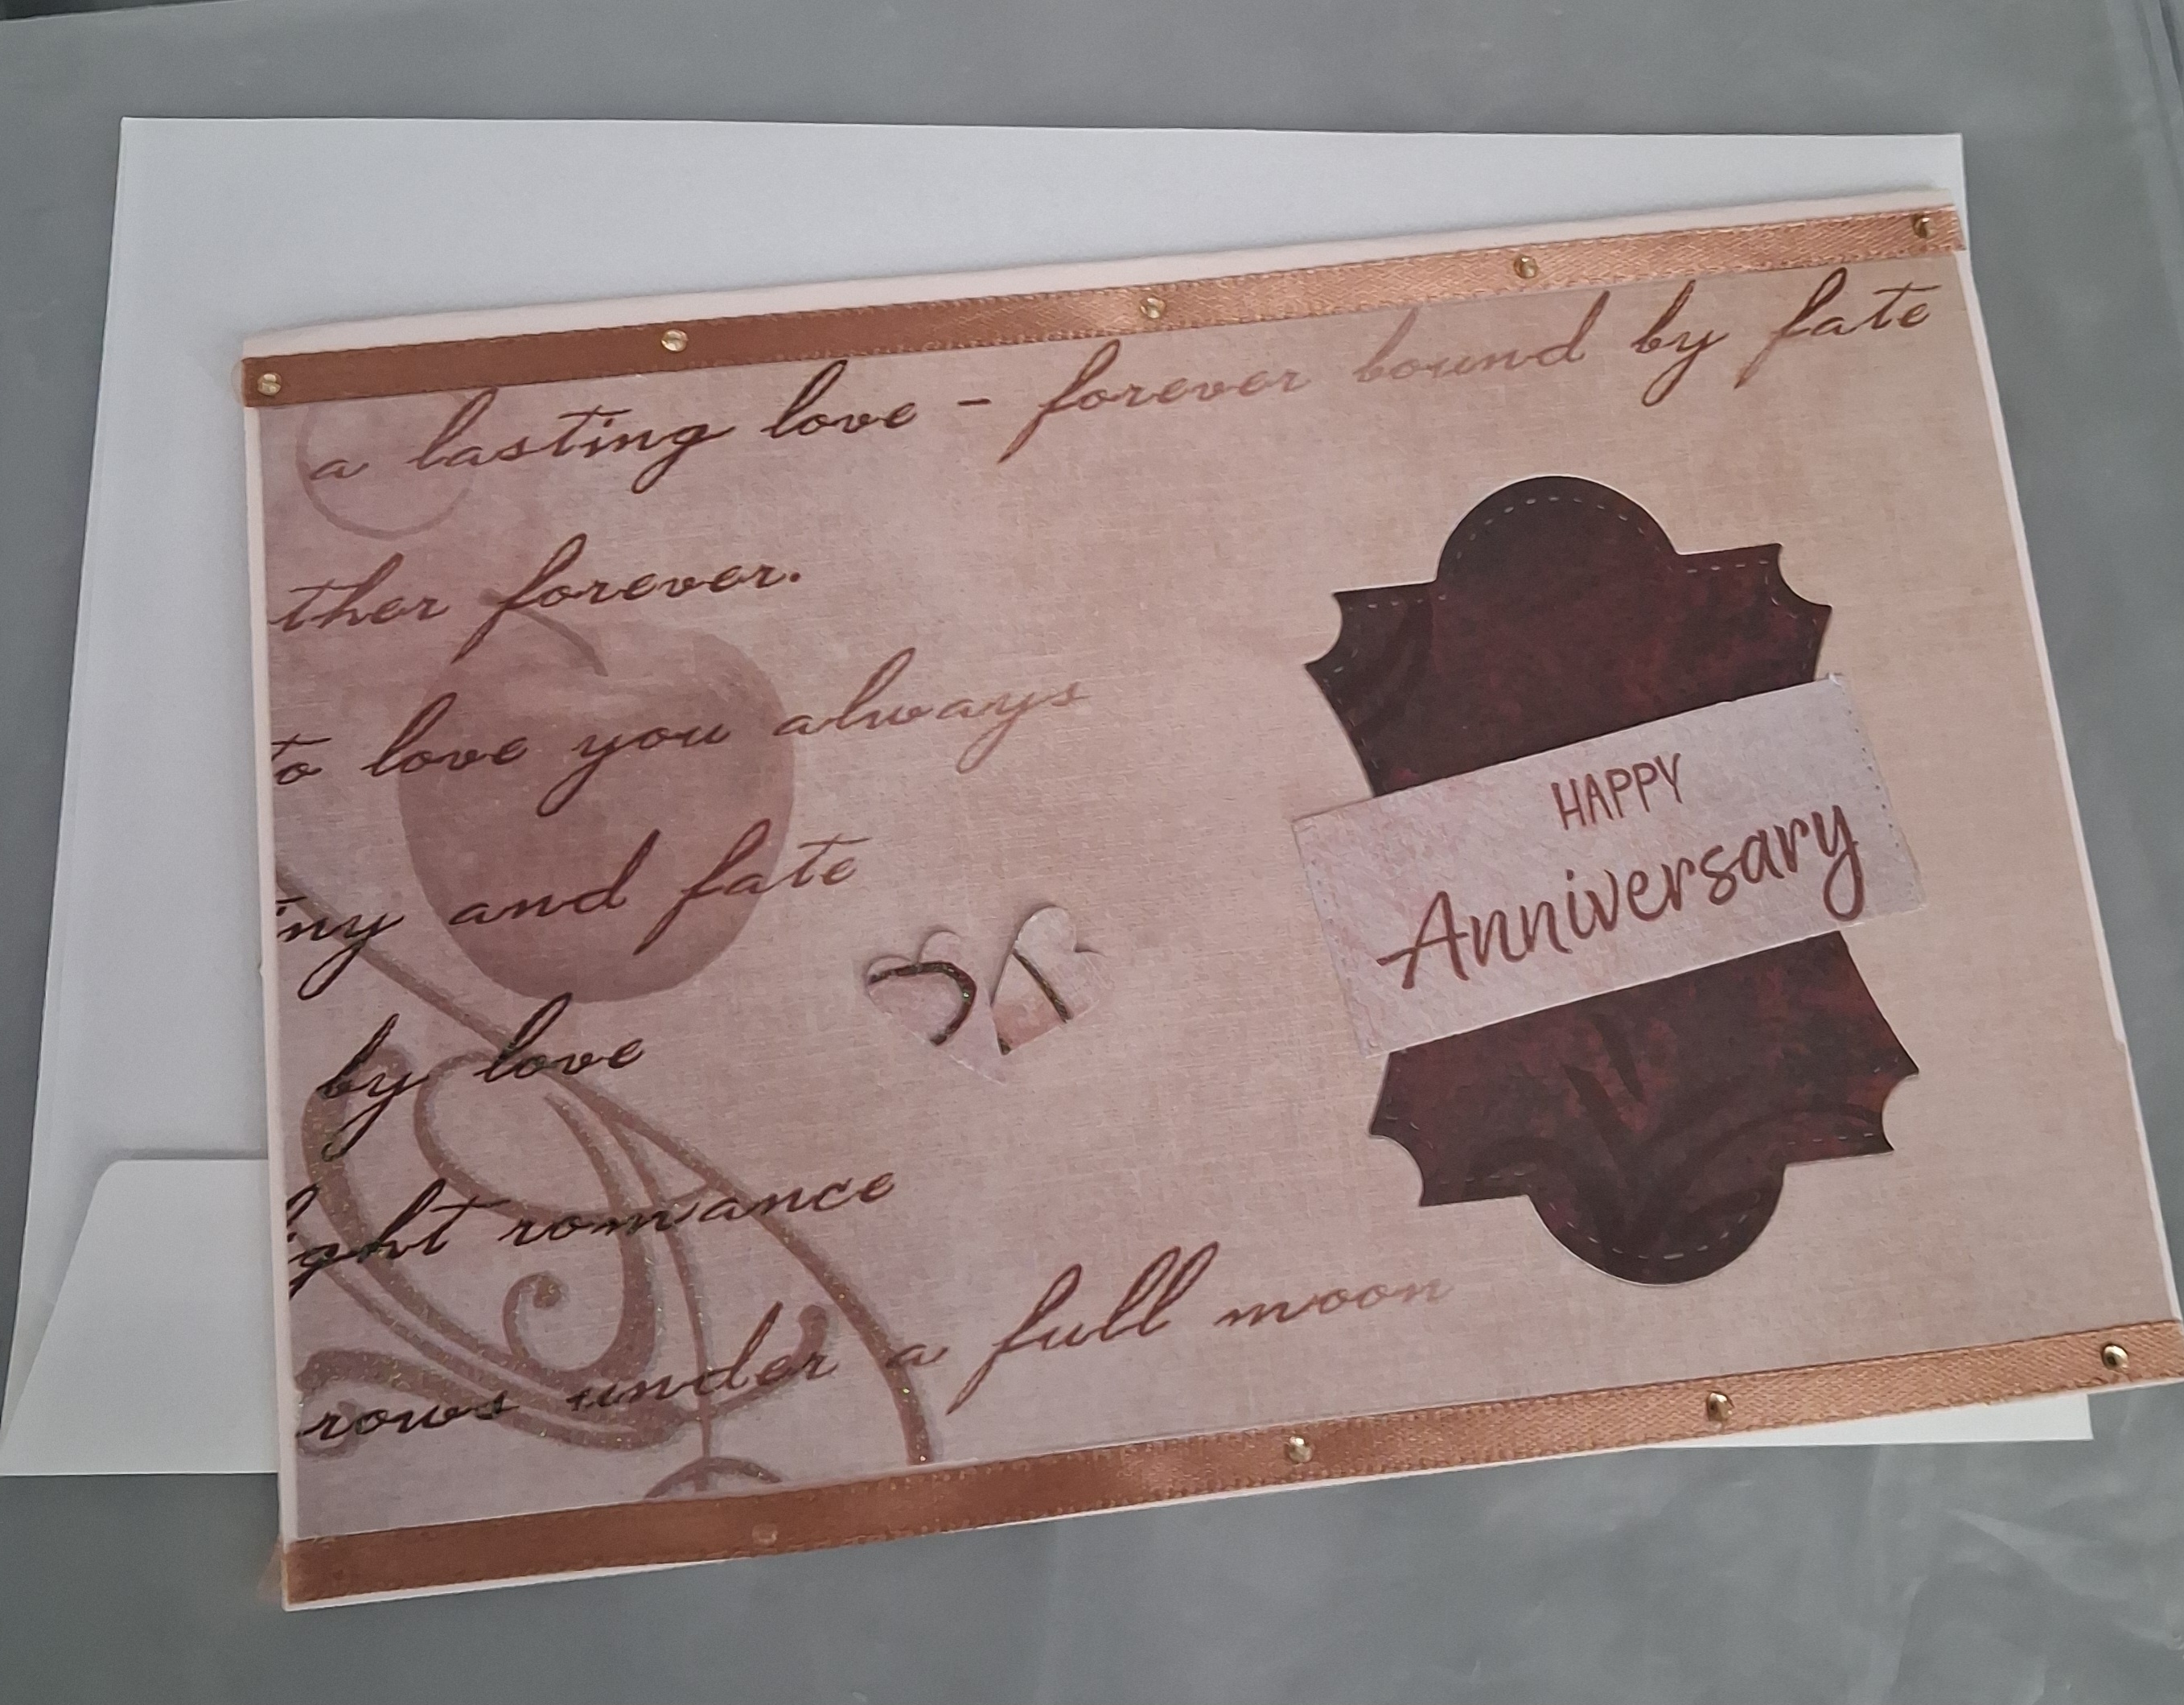 a lasting love - forever bound by fate
ther forever.
to love you always
iny and fate
by love
ight romance
rows under a full moon
HAPPY
Anniversary